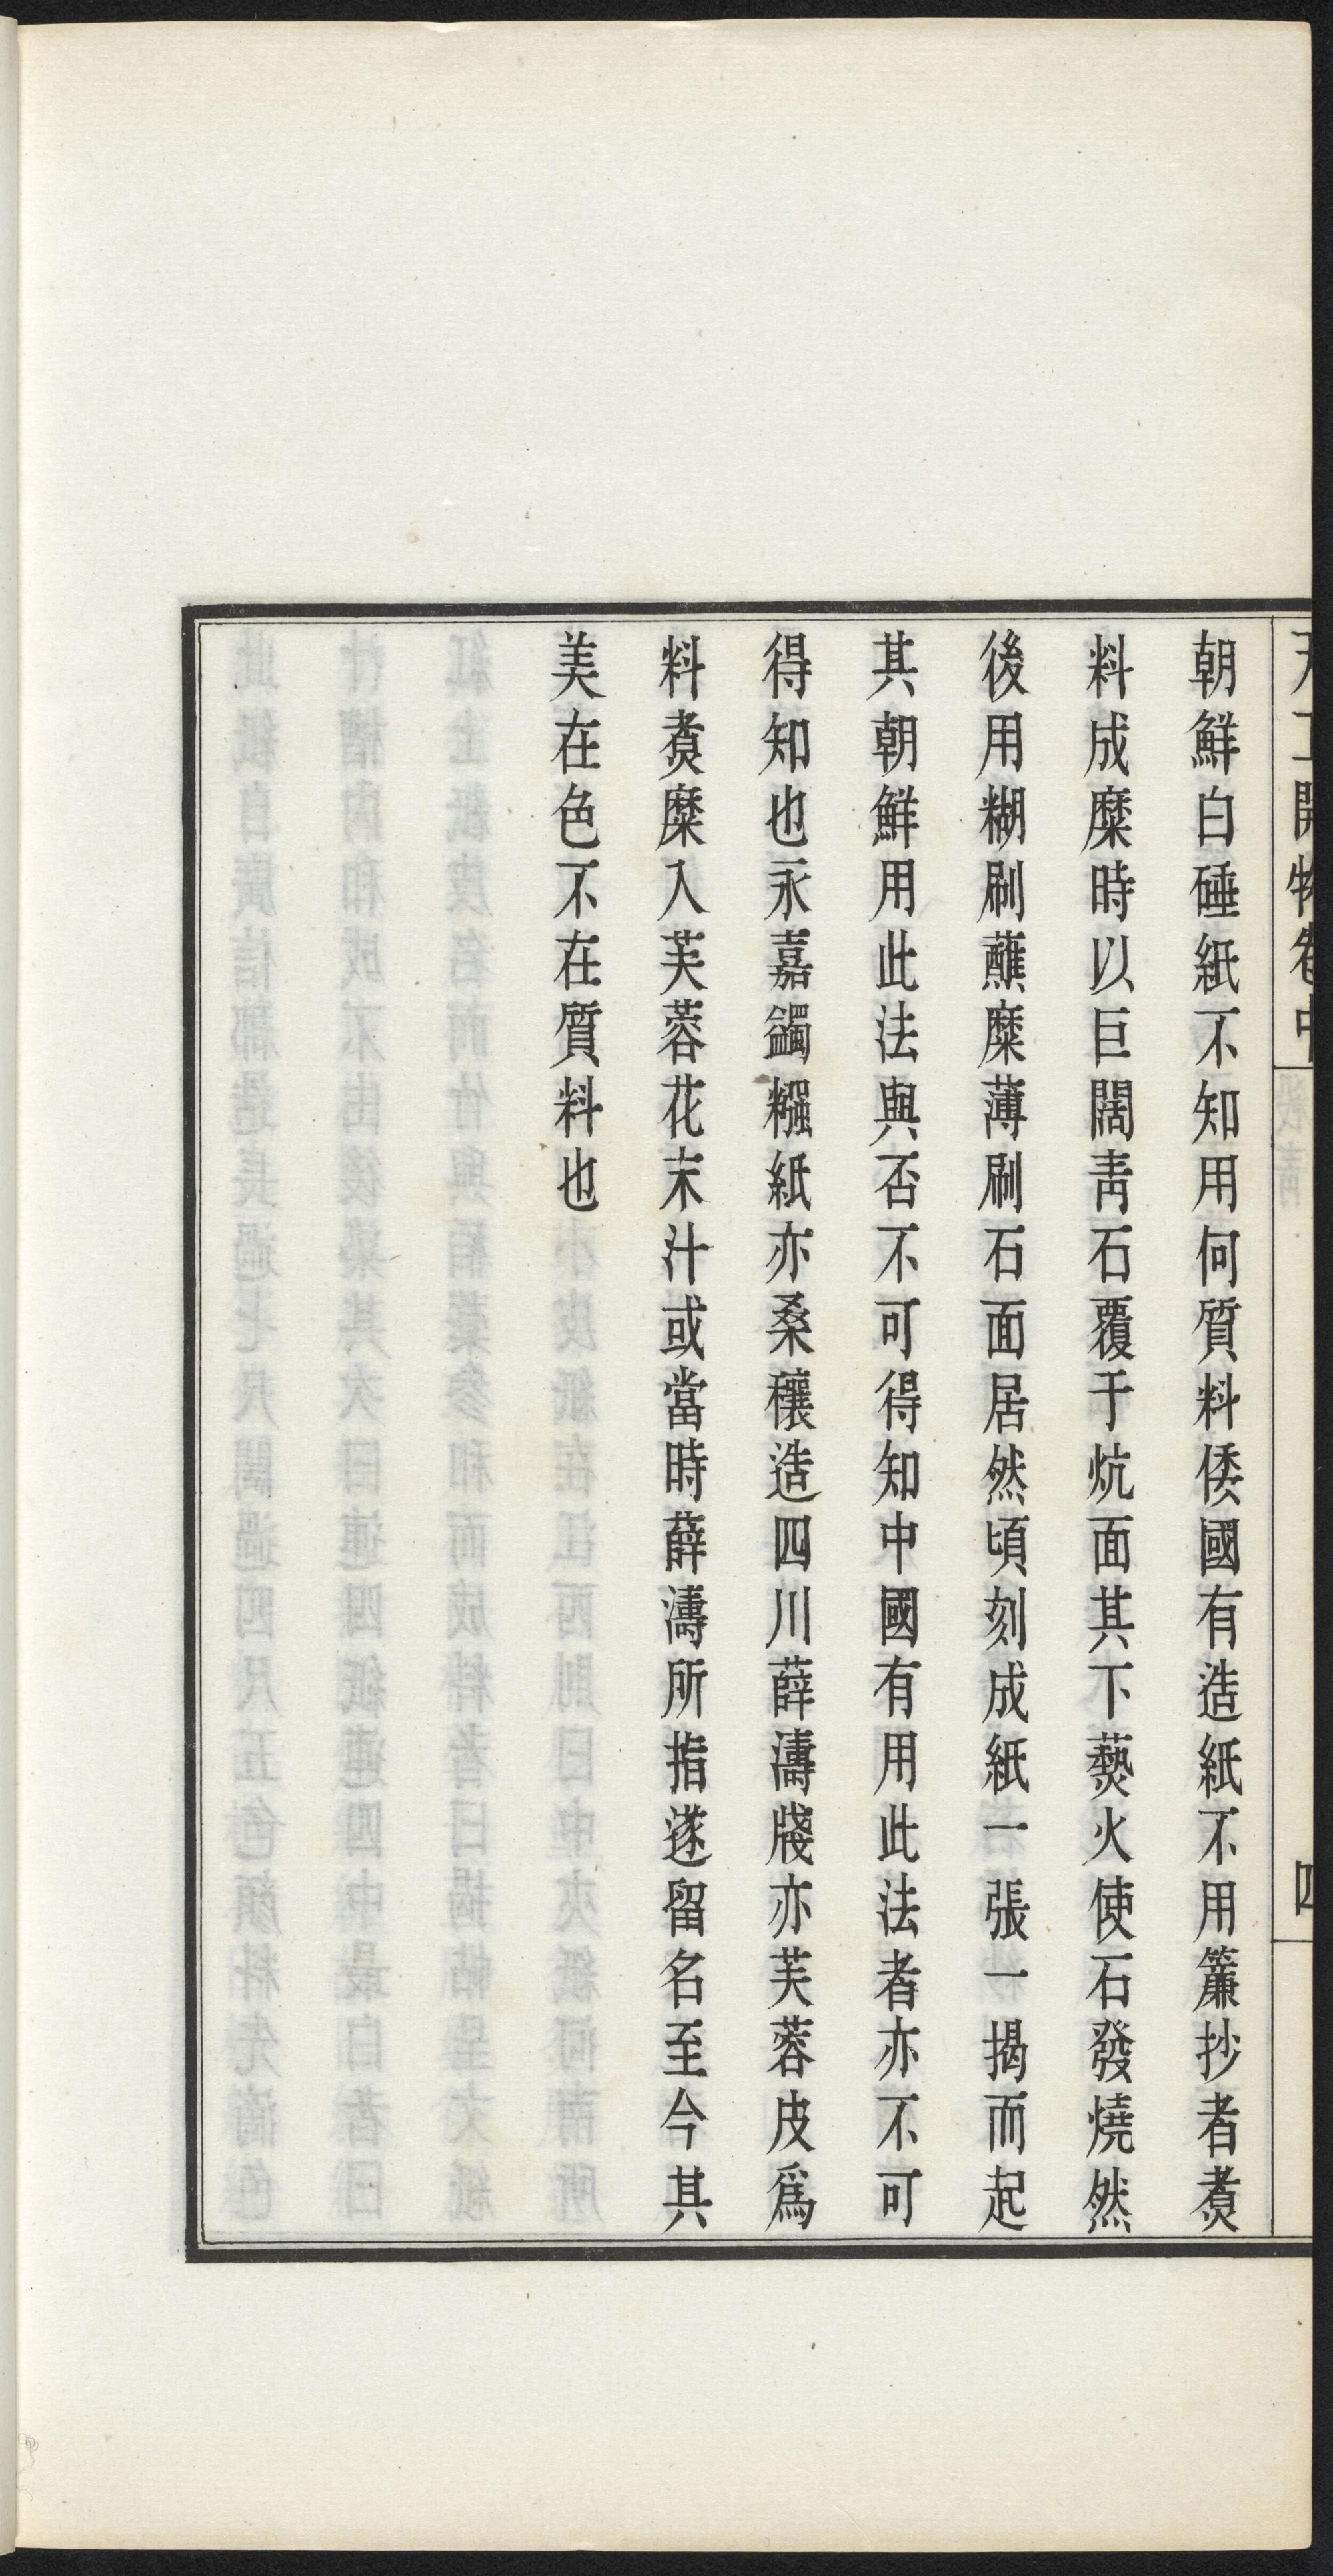 天工開物卷中
四
朝鮮白硾紙不知用何質料倭國有造紙不用簾抄者煑
料成糜時以巨闊青石覆于炕面其下爇火使石發燒然
後用糊刷蘸糜薄刷石面居然頃刻成紙一張一揭而起
其朝鮮用此法與否不可得知中國有用此法者亦不可
得知也永嘉蠲糨紙亦桑穰造四川薛濤牋亦芙蓉皮爲
料煑糜入芙蓉花末汁或當時薛濤所指遂留名至今其
美在色不在質料也